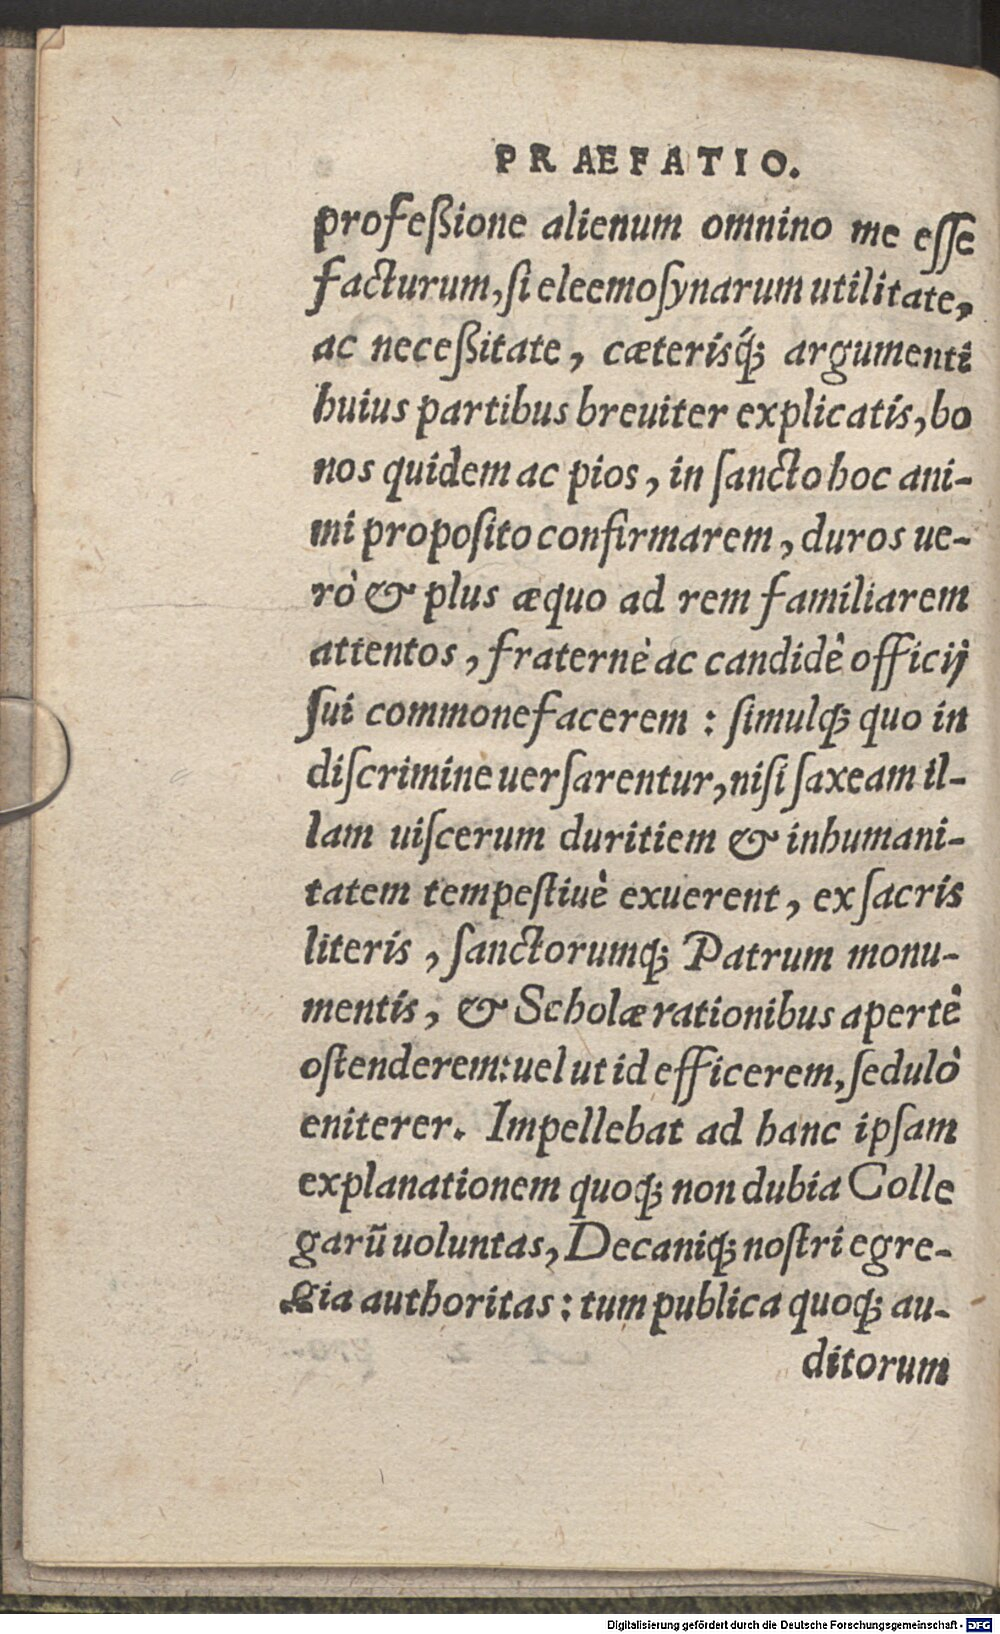 PRAEFATIO.
profeßione alienum omnino me eſſe
facturum, ſi eleemoſynarum utilitate,
ac neceßitate, cæterisq́; argumenti
huius partibus breuiter explicatis, bo
nos quidem ac pios, in ſancto hoc ani-
mi propoſito confirmarem, duros ue-
rò & plus æquo ad rem familiarem
attentos, fraternè ac candidè officij
ſui commonefacerem: ſimulq; quo in
diſcrimine uerſarentur, niſi ſaxeam il-
lam uiſcerum duritiem & inhumani-
tatem tempeſtiuè exuerent, ex ſacris
literis, ſanctorumq; Patrum monu-
mentis, & Scholæ rationibus apertè
oſtenderem: uel ut id efficerem, ſedulò
eniterer. Impellebat ad hanc ipſam
explanationem quoq; non dubia Colle
garũ uoluntas, Decaniq; noſtri egre-
gia authoritas: tum publica quoq; au-
ditorum
Digitalisierung gefördert durch die Deutsche Forschungsgemeinschaft - DFG